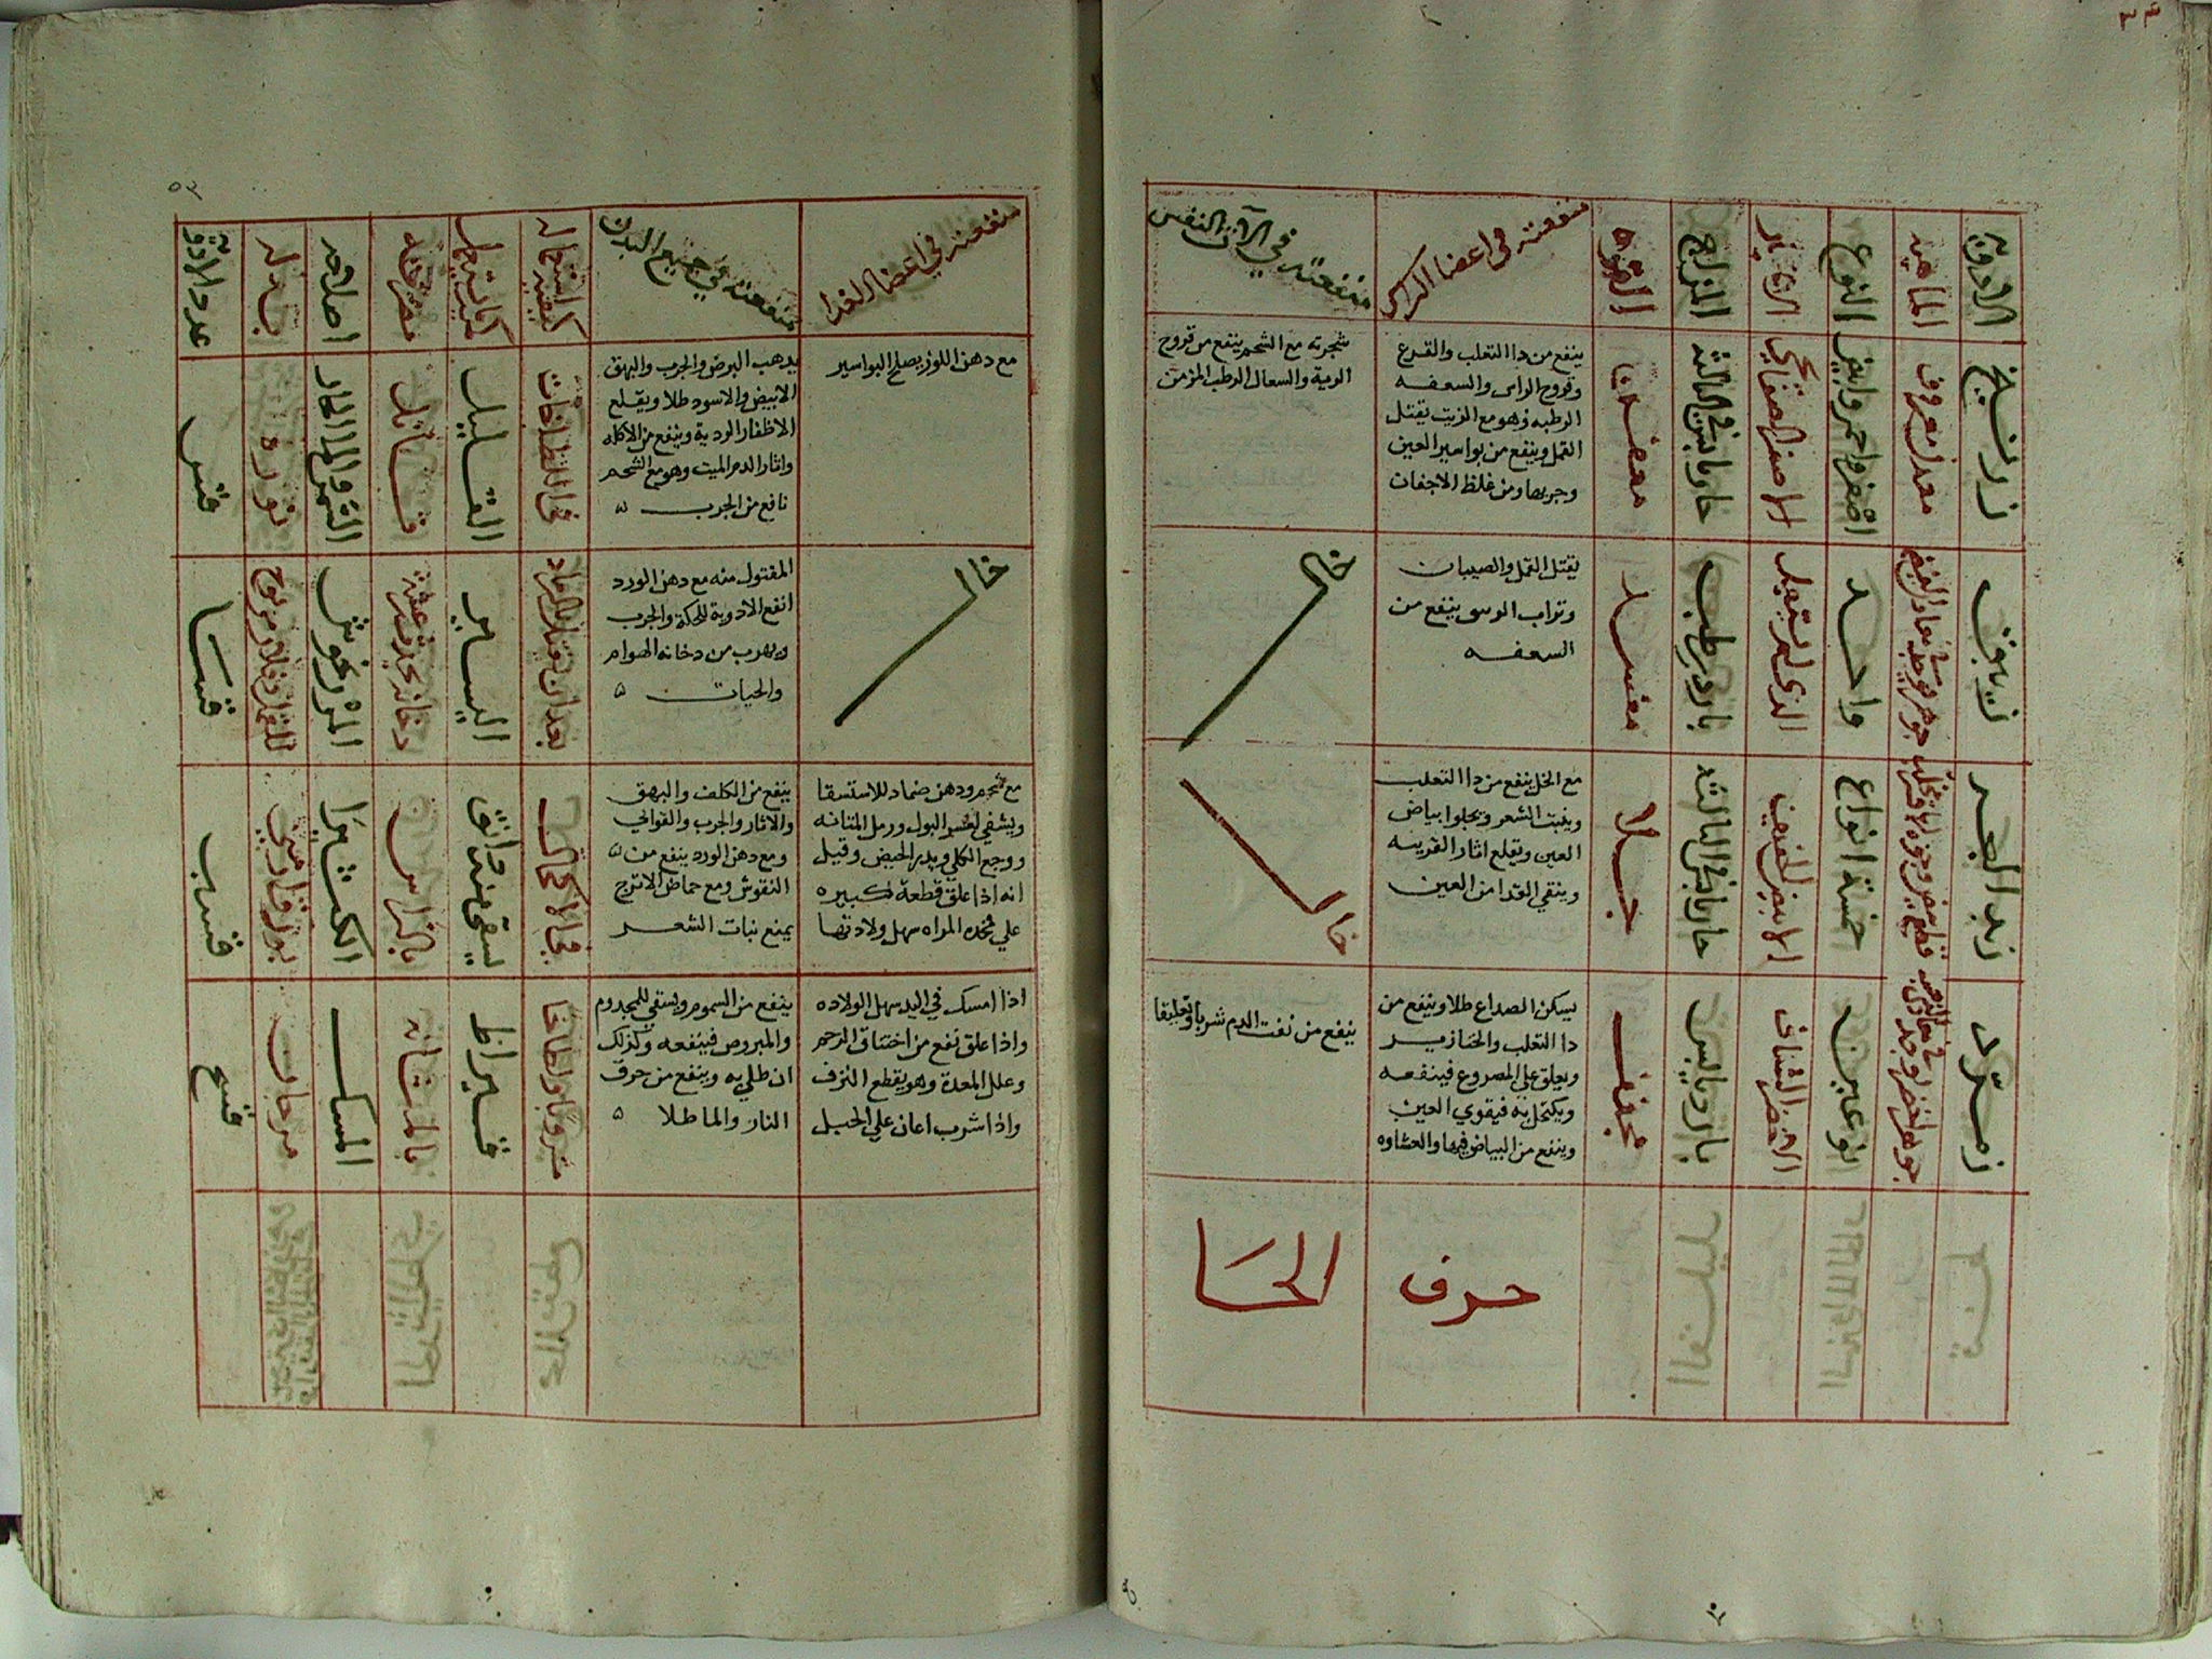 الادوية
الماهية
النوع
الاختيار
المزاج
القوة
منفعته في اعضا الراس
منفعته في الات النفس
زرنيخ
معدن معروف
اصفر واحمر وابيض
الاصفر الصفايحي
حار يابس في الثالثة
معفن
ينفع من دا الثعلب والقرع
وقروح الراس والسعفه
الرطبه وهو مع الزيت يقتل
القمل وينفع من بواسير العين
وجربها ومن غلظ الاجفان
شجرته مع الشحم ينفع من قروح
الرية والسعال الرطب المزمن
زيبق
واحد
الذي لم يستعمل
بارد رطب
مفسد
يقتل القمل والصيبان
وتراب الموسي ينفع من
السعفه
خال
زبد البحر
خمسة انواع
الابيض الخفيف
حار يابس في الثالثه
جلا
مع الخل ينفع من دا الثعلب
وينبت الشعر ويجلوا بياض
العين ويقلع اثار القرنيه
وينقي القذا من العين
خال
زمرد
نوعين
الاخضر الشفاف
بارد يابس
مجفف
يسكن الصداع طلا وينفع من
دا الثعلب والخنازير
ويعلق علي المصروع فينفعه
ويكتحل به فيقوي العين
وينفع من البياض فيها والغشاوه
ينفع من نفث الدم شربا وتعليقا
حرف
الحا
٥٣
منفعته في اعضا الغذا
منفعته في جميع البدن
كيفية استعماله
كمية ما يستعمل
مضرته
اصلاحه
بدله
عدد الادوية
مع دهن اللوز يصلح البواسير
يذهب البرص والجرب والبهق
الابيض والاسود طلا ويقلع
الاظفار الردية وينفع من الاكله
واثار الدم الميت وهو مع الشحم
نافع من الجرب
في اللطوخات
القليل
قتاله
نوره
خال
المقتول منه مع دهن الورد
انفع الادوية للحكة والجرب
ويهرب من دخانه الهوام
والحيات
بعد ان يقتل بالرماد
اليسير
دخانه يحدث رعشة
المرزنجوش
مع شحم ودهن ضماد للاستسقا
ويشفي لعسر البول ورمل المثانه
ووجع الكلي ويدر الحيض وقيل
انه اذا علق قطعة كبيره
علي فخذه المراه سهل ولادتها
ينفع من الكلف والبهق
والاثار والجرب والقوابي
ومع دهن الورد ينفع من
النقوش ومع حماض الاترج
يمنع نبات الشعر
في الاكحال
يسقى منه دانق
بالراس
الكثيرا
بورق ارمني
اذا امسك في اليد سهل الولاده
واذا علق نفع من اختناق الرحم
وعلل المعدة وهو يقطع النزف
واذا شرب اعان علي الحبل
ينفع من السموم ويسقي للمجذوم
والمبروص فينفعه وكذلك
ان طلي به وينفع من حرق
النار والما طلا
مشروبا ولطوخا
قيراط
بالمثانه
المسك
مرجان